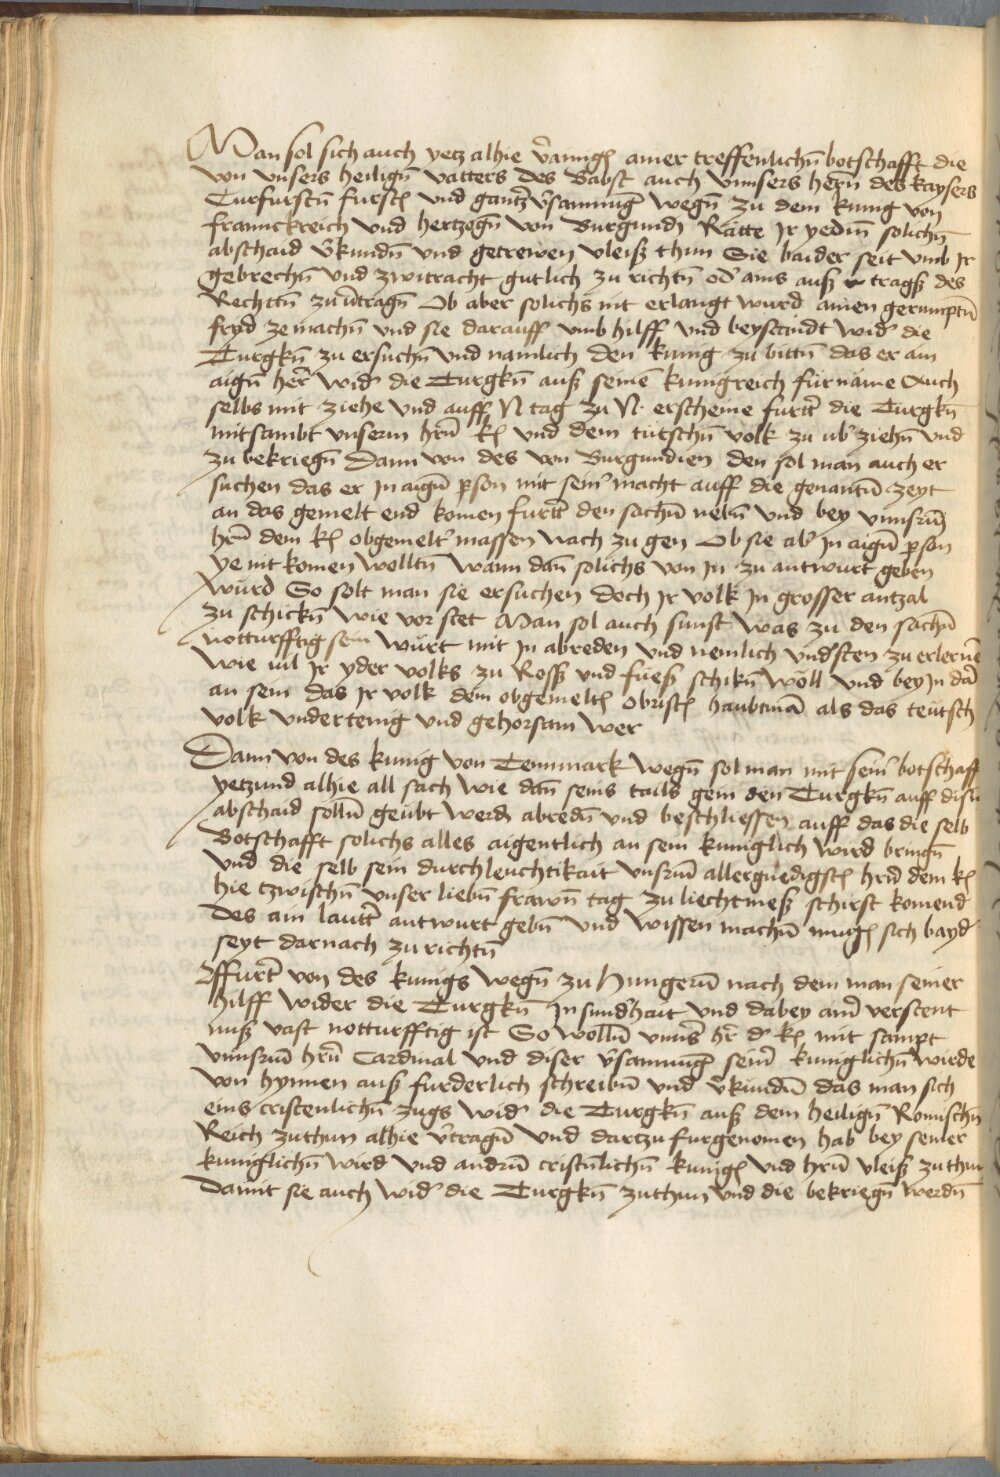 Man sol sich auch yetz alhie v̄ainigen ainer treffenlichn̄ botschafft die
von vnsers heilign̄ vatters des Babst auch vnnsers hern̄ des kaysers
Curfurstn̄ fursten vnd gantzer v̄samnūg wegn̄ zu dem kunig von
Frannckreich vnd hertzogn̄ von Burgundj Rätte Jr yedm̄ solichn̄
abschaid v̄kundn̄ vnd getrewen vleiß thun Sie baider seit vmb Jr
gebrechn̄ vnd zwitracht gutlich zu richtn̄ od' ains auß tragß des
Rechttn̄ zu v̄tragn̄ Ob aber solichs nit erlangt wurd ainen gerumptn̄
fryd ze machn̄ vnd sie darauff vmb hilff vnd beystandt wid' die
Turgkn̄ zu ersuchn̄ vnd namlich den kunig zu bittn̄ das er ain
aign̄ her' wid' die Turgkn̄ auß seinē kunigreich fürnäme Auch
selbs mit ziehe vnd auff N tag zu N. erscheine furtt' die Turgkn̄
mitsambt vnserm hrn̄ k[] vnd dem tütschn̄ volk zu üb' ziehn̄ vnd
zu bekriegn̄ Dann von des von Burgundien den sol man auch er
suchen das er Jn aign̄ p̄son mit sein' macht auff die genantn̄ zeyt
an das gemelt end komen furtt' den sachn̄ nebn̄ vnd bey vnnsrm̄
hrn̄ dem k[] obgemelt' massen nach zu gen Ob sie ab' Jn aign̄ p̄son
ye nit komen wolltn̄ wann dan̄ solichs von Jn zu antwurt geben
würd So solt man sie ersuchen doch Jr volk Jn grosser antzal
zu schickn̄ wie vor stet Man sol auch sunst was zu den sachn̄
notturfftig sein würt mit Jn abreden vnd nemlich vnd'sten zu erlernē
wie uil Jr yder volks zu Roß vnd fueß schikn̄ wöll vnd bey Jn dā
an sein das Jr volk dem obgemeltn̄ obristn̄ haubtmā als das teütsch
volk vndertenig vnd gehorsam wer
Dann von des kunig von Tennmark wegn̄ sol man mit sein' botschafft
yetzund alhie all sach wie dan̄ seins tails gein den Turgkn̄ auff disn̄
abschaid sölln̄ geübt werdn̄ abredn̄ vnd beschliessen auff das die selb
Botschafft solichs alles aigentlich an sein kuniglich wird bringn̄
vnd die selb sein durchleuchtikait vnsrm̄ allergnedigstn̄ hrn̄ dem k[]
hie tzwischn̄ vnser liebn̄ frawn̄ tag zu liechtmeß schirst komend
des ain lautt' antwurt gebn̄ vnd wissen machn̄ mugn̄ sich bayd'
seyt darnach zu richtn̄
Furtt' von des kunigs wegn̄ zu Hungern̄ nach dem man seiner
hilff wider die Turgkn̄ Jn sund'hait vnd dabey ain' verstent
nuß vast notturfftig ist So wölln̄ vnns' hr' d' k[] mit sampt
vnnsrm̄ hrn̄ Cardinal vnd diser v̄samnūg sein' kuniglichn̄ wirde
von hynnen auß furderlich schreibn̄ vnd v̄kundn̄ das man sich
eins cristenlichn̄ zugs wid' die Turgkn̄ auß dem heilign̄ Römischn̄
Reich zuthun alhie v̄tragn̄ vnd dartzu furgenomen hab bey seiner
kuniglichn̄ wird vnd andrn̄ cristnlichn̄ kunign̄ vnd hrn̄ vleiß zu thun
damit sie auch wid' die Turgkn̄ zuthun vnd die bekriegn̄ werdn̄